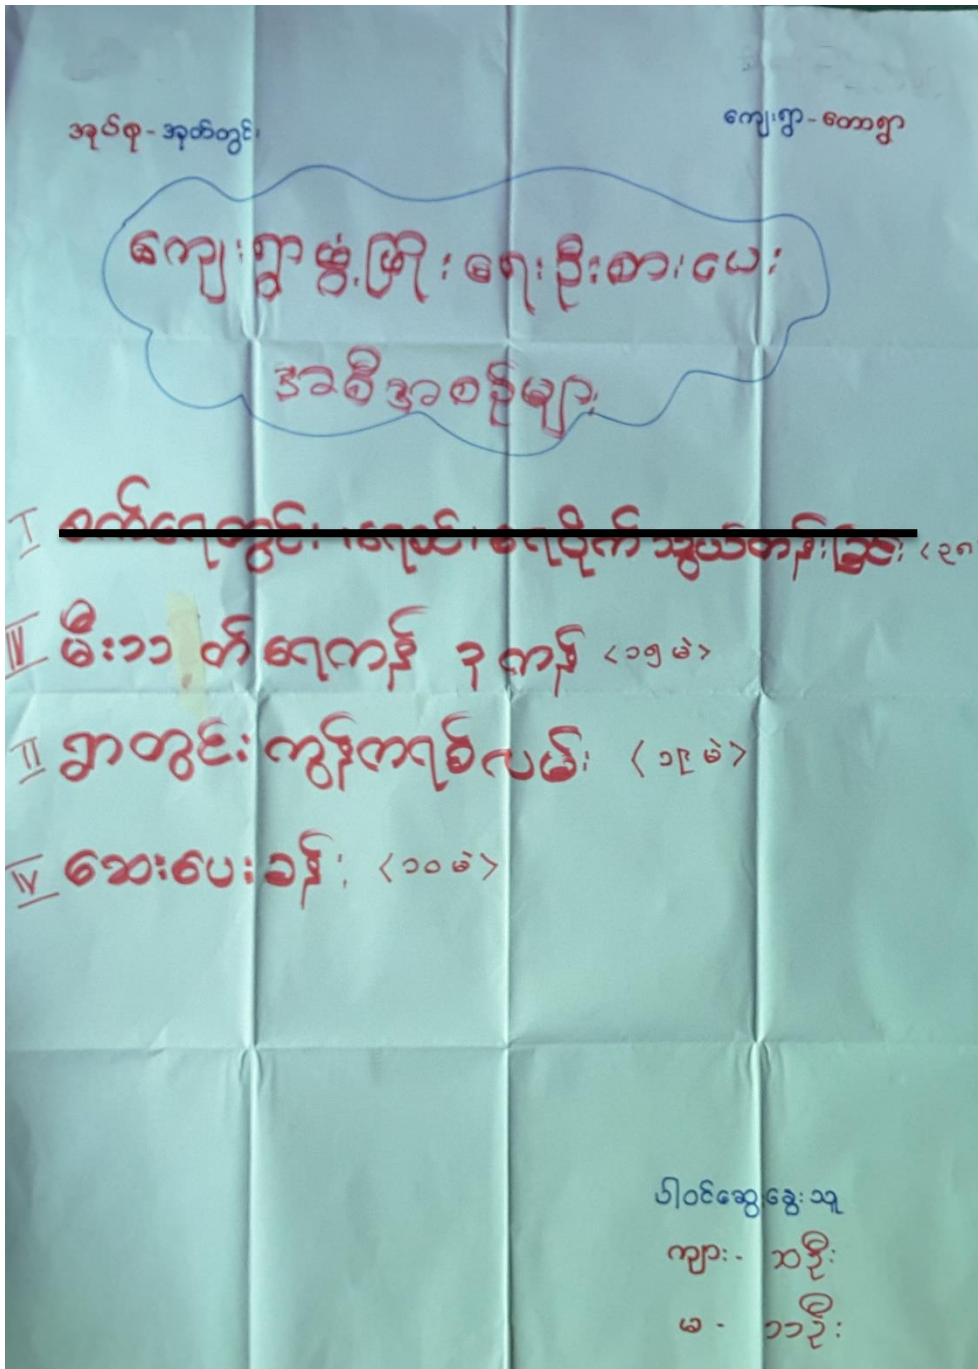 အုပ်စု - အုတ်တွင်း
ကျေးရွာ - တောရွာ
ကျေးရွာဖွံ့ဖြိုးရေးဦးစားပေး
အစီအစဉ်များ
I စက်ရေတွင်း၊ ရေစင်၊ ရေပိုက်သွယ်တန်းခြင်း <၃၈
IV မီးသတ်ရေကန် ၃ ကန် <၁၅ မဲ>
II ရွာတွင်းကွန်ကရစ်လမ်း <၁၉ မဲ>
IV ဆေးပေးခန်း <၁၀ မဲ>
ပါဝင်ဆွေးနွေးသူ
ကျား - ၁၈ဦး
မ - ၁၁ဦး